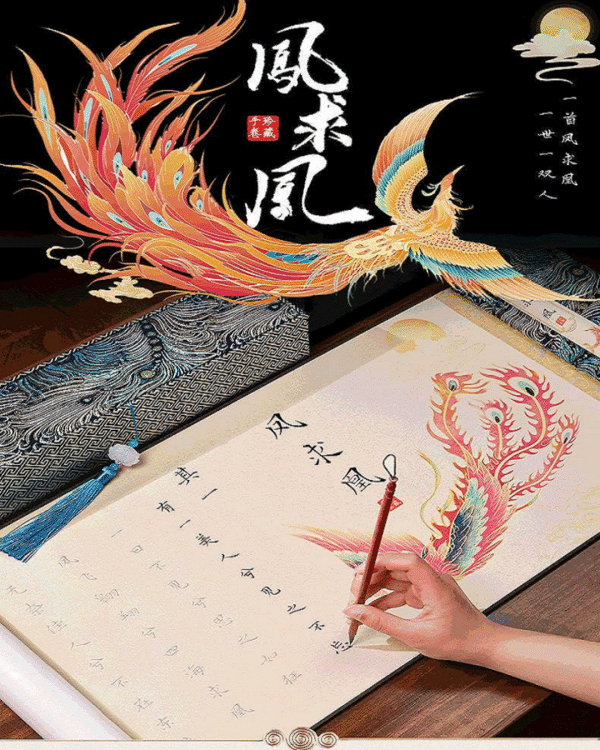 鳳求凰
珍藏
手卷
一首凤求凰
一世一双人
凤求凰
其一
有一美人兮见之不忘
一日不见兮思之如狂
凤飞翱翔兮四海求凰
无奈佳人兮不在东